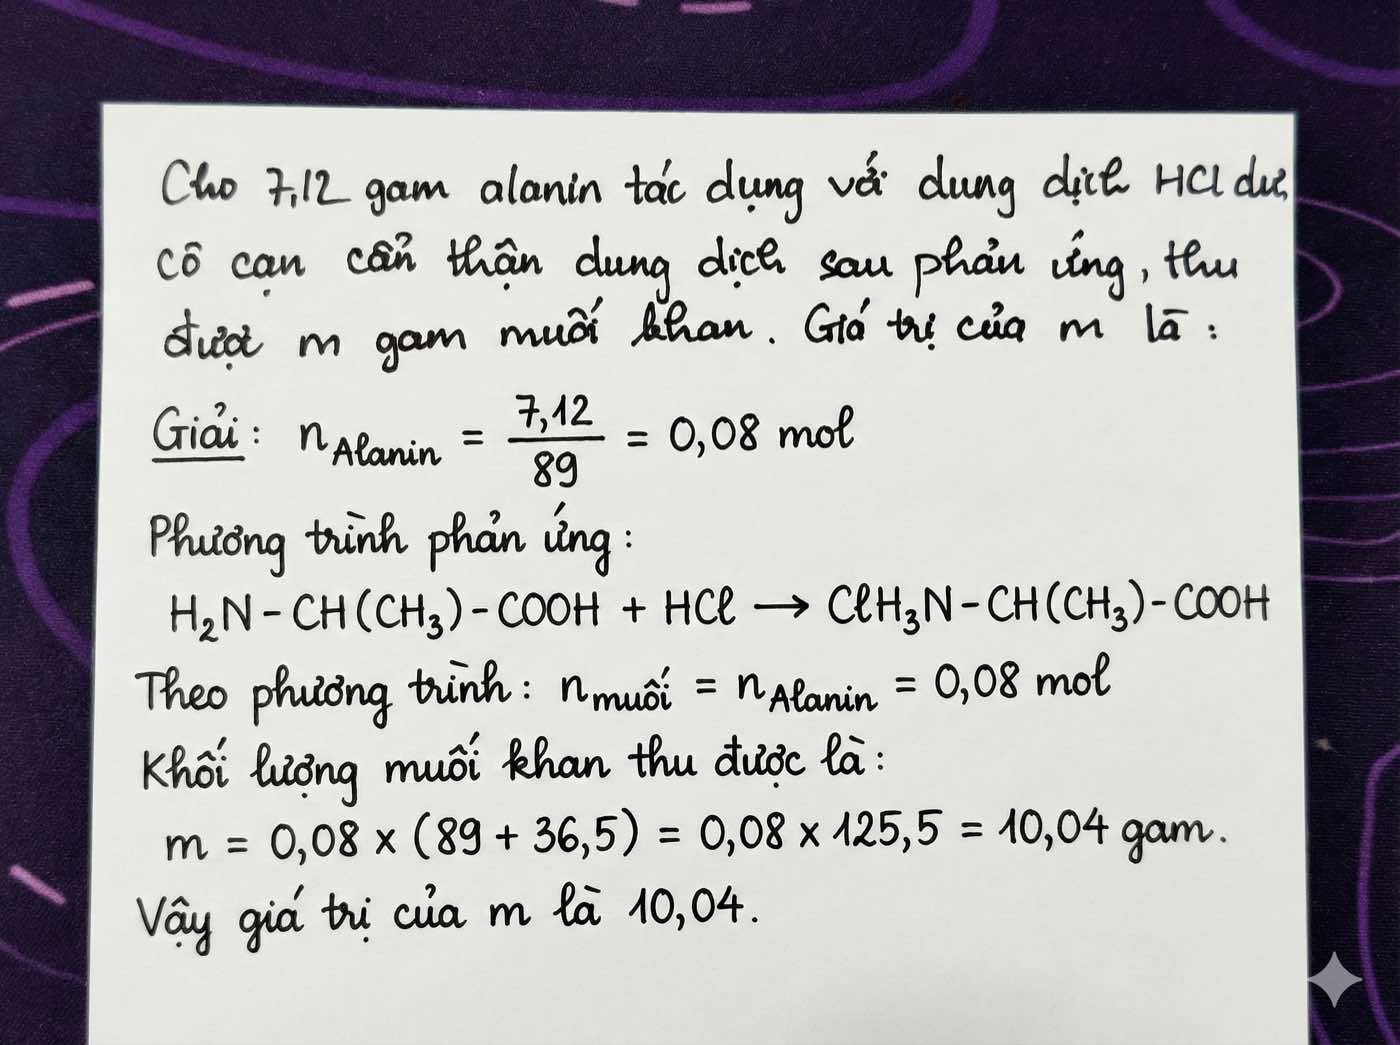 Cho 7,12 gam alanin tác dụng với dung dịch HCl dư,
cô cạn cẩn thận dung dịch sau phản ứng, thu
được m gam muối khan. Giá trị của m là :
Giải : n_Alanin = 7,12/89 = 0,08 mol
Phương trình phản ứng :
H₂N – CH(CH₃) – COOH + HCl → ClH₃N – CH(CH₃) – COOH
Theo phương trình : n_muối = n_Alanin = 0,08 mol
Khối lượng muối khan thu được là :
m = 0,08 × (89 + 36,5) = 0,08 × 125,5 = 10,04 gam.
Vậy giá trị của m là 10,04.